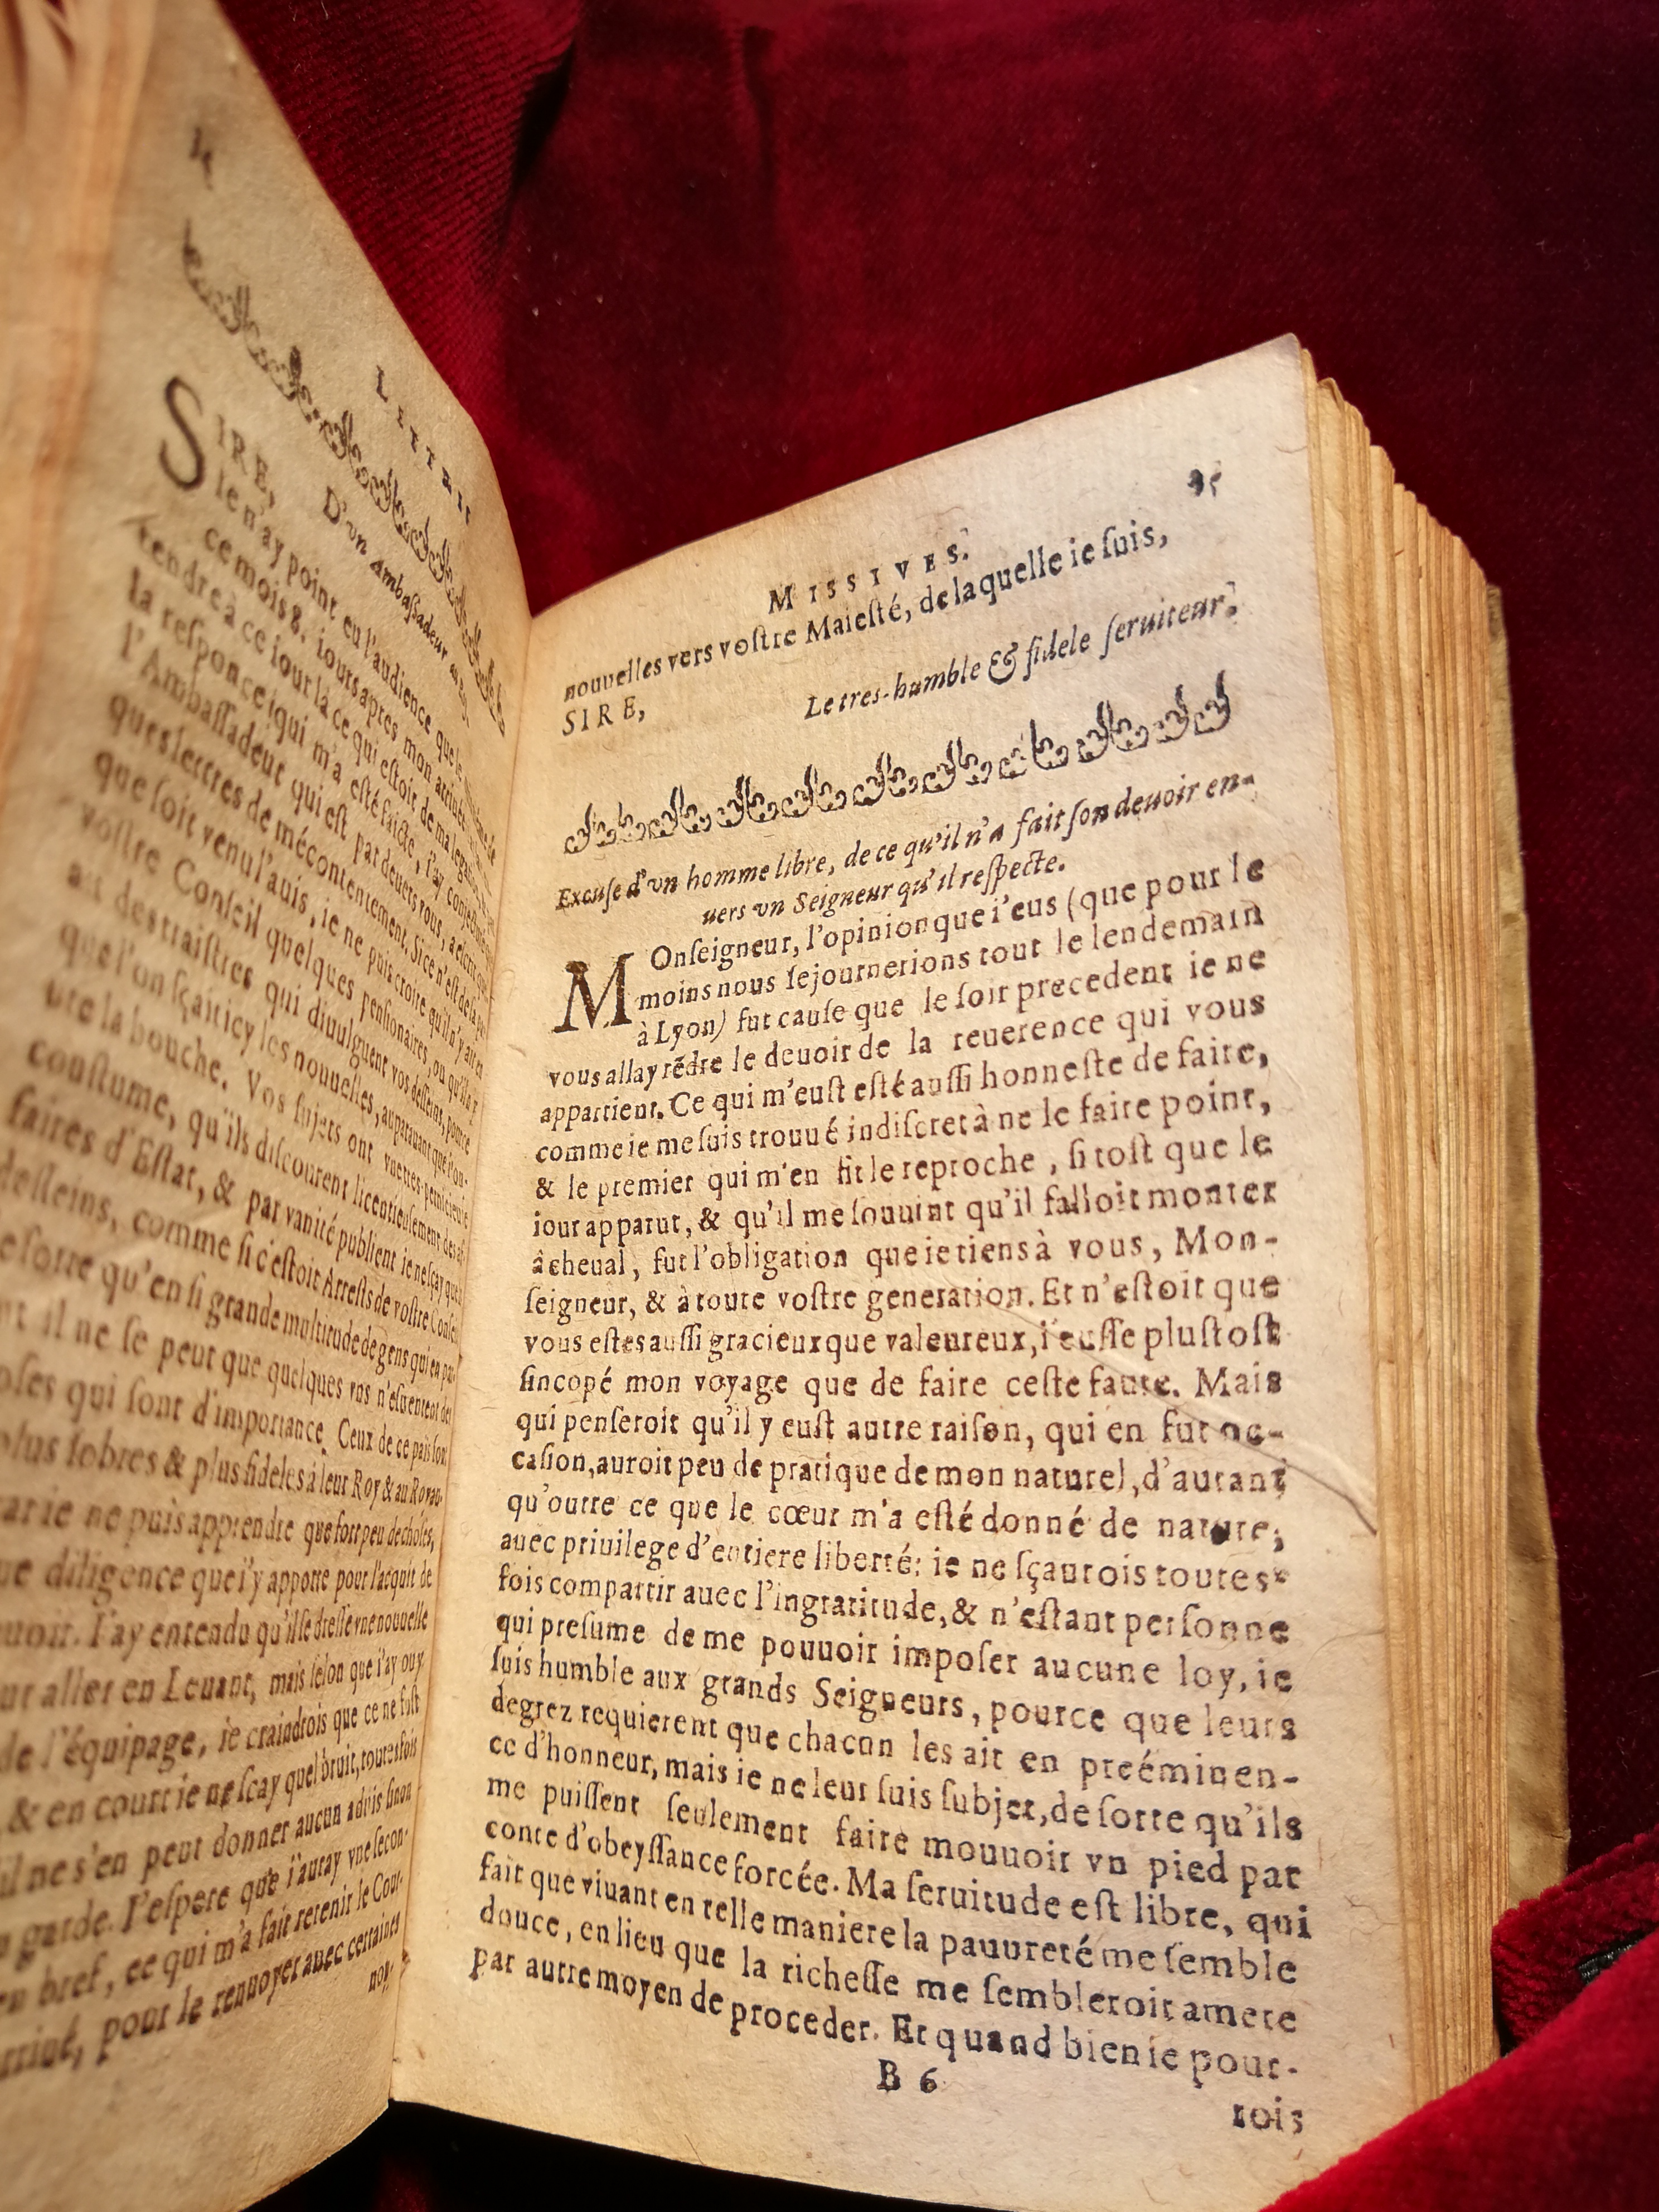 LETTRES
D'vn Ambassadeur
SIRE,
Ie n'ay point eu l'audience que le
ce mois 8. iours apres mon arriuee
rendre à ce iour là ce qui estoit de ma legation
la responce (qui m'a esté faicte, i'ay
l'Ambassadeur qui est par deuers vous, a
ques lettres de mécontentement. Si ce n'est de là
que soit venu l'auis, ie ne puis croire qu'il n'y ait en
vostre Conseil quelques pensionaires, ou qu'il n'y
ait des traistres qui diuulguent vos desseins, pource
que l'on sçait icy les nouuelles, auparauant que l'on
ure la bouche. Vos sujets ont
coustume, qu'ils discourent licentieusement des af-
faires d'Estat, & par vanité publient ie ne sçay quels
desseins, comme si c'estoit Arrests de vostre Conseil
e sorte qu'en si grande multitude de gens qui en
nt il ne se peut que quelques vns n'esuentent des
oses qui sont d'importance. Ceux de ce païs sont
plus sobres & plus fideles à leur Roy & au Royau-
car ie ne puis apprendre que fort peu de choses,
ue diligence que i'y apporte pour l'acquit de
uoir. I'ay entendu qu'il se dresse vne nouuelle
ur aller en Leuant, mais selon que i'ay ouy
de l'équipage, ie craindrois que ce ne fust
, & en court ie ne sçay quel bruit, toutesfois
il ne s'en peut donner aucun aduis sinon
garde. I'espere que i'auray vne secon-
en bref, ce qui m'a fait retenir le Cour-
rriué, pour le renuoyer auec certaines
nou-
MISSIVES.
nouuelles vers vostre Maiesté, de laquelle ie suis,
SIRE,
Le tres-humble & fidele seruiteur.
Excuse d'vn homme libre, de ce qu'il n'a fait son deuoir en-
uers vn Seigneur qu'il respecte.
MOnseigneur, l'opinion que i'eus (que pour le
moins nous sejournerions tout le lendemain
à Lyon) fut cause que le soir precedent ie ne
vous allay rẽdre le deuoir de la reuerence qui vous
appartient. Ce qui m'eust esté aussi honneste de faire,
comme ie me suis trouué indiscret à ne le faire point,
& le premier qui m'en fit le reproche, si tost que le
iour apparut, & qu'il me souuint qu'il falloit monter
à cheual, fut l'obligation que ie tiens à vous, Mon-
seigneur, & à toute vostre generation. Et n'estoit que
vous estes aussi gracieux que valeureux, i'eusse plustost
sincopé mon voyage que de faire ceste faute. Mais
qui penseroit qu'il y eust autre raison, qui en fut oc-
casion, auroit peu de pratique de mon naturel, d'autant
qu'outre ce que le cœur m'a esté donné de nature,
auec priuilege d'entiere liberté: ie ne sçaurois toutes-
fois compartir auec l'ingratitude, & n'estant personne
qui presume de me pouuoir imposer aucune loy, ie
suis humble aux grands Seigneurs, pource que leurs
degrez requierent que chacun les ait en préeminen-
ce d'honneur, mais ie ne leur suis subjet, de sorte qu'ils
me puissent seulement faire mouuoir vn pied par
conte d'obeyssance forcée. Ma seruitude est libre, qui
fait que viuant en telle maniere la pauureté me semble
douce, en lieu que la richesse me sembleroit amere
par autre moyen de proceder. Et quand bien ie pour-
B 6
rois